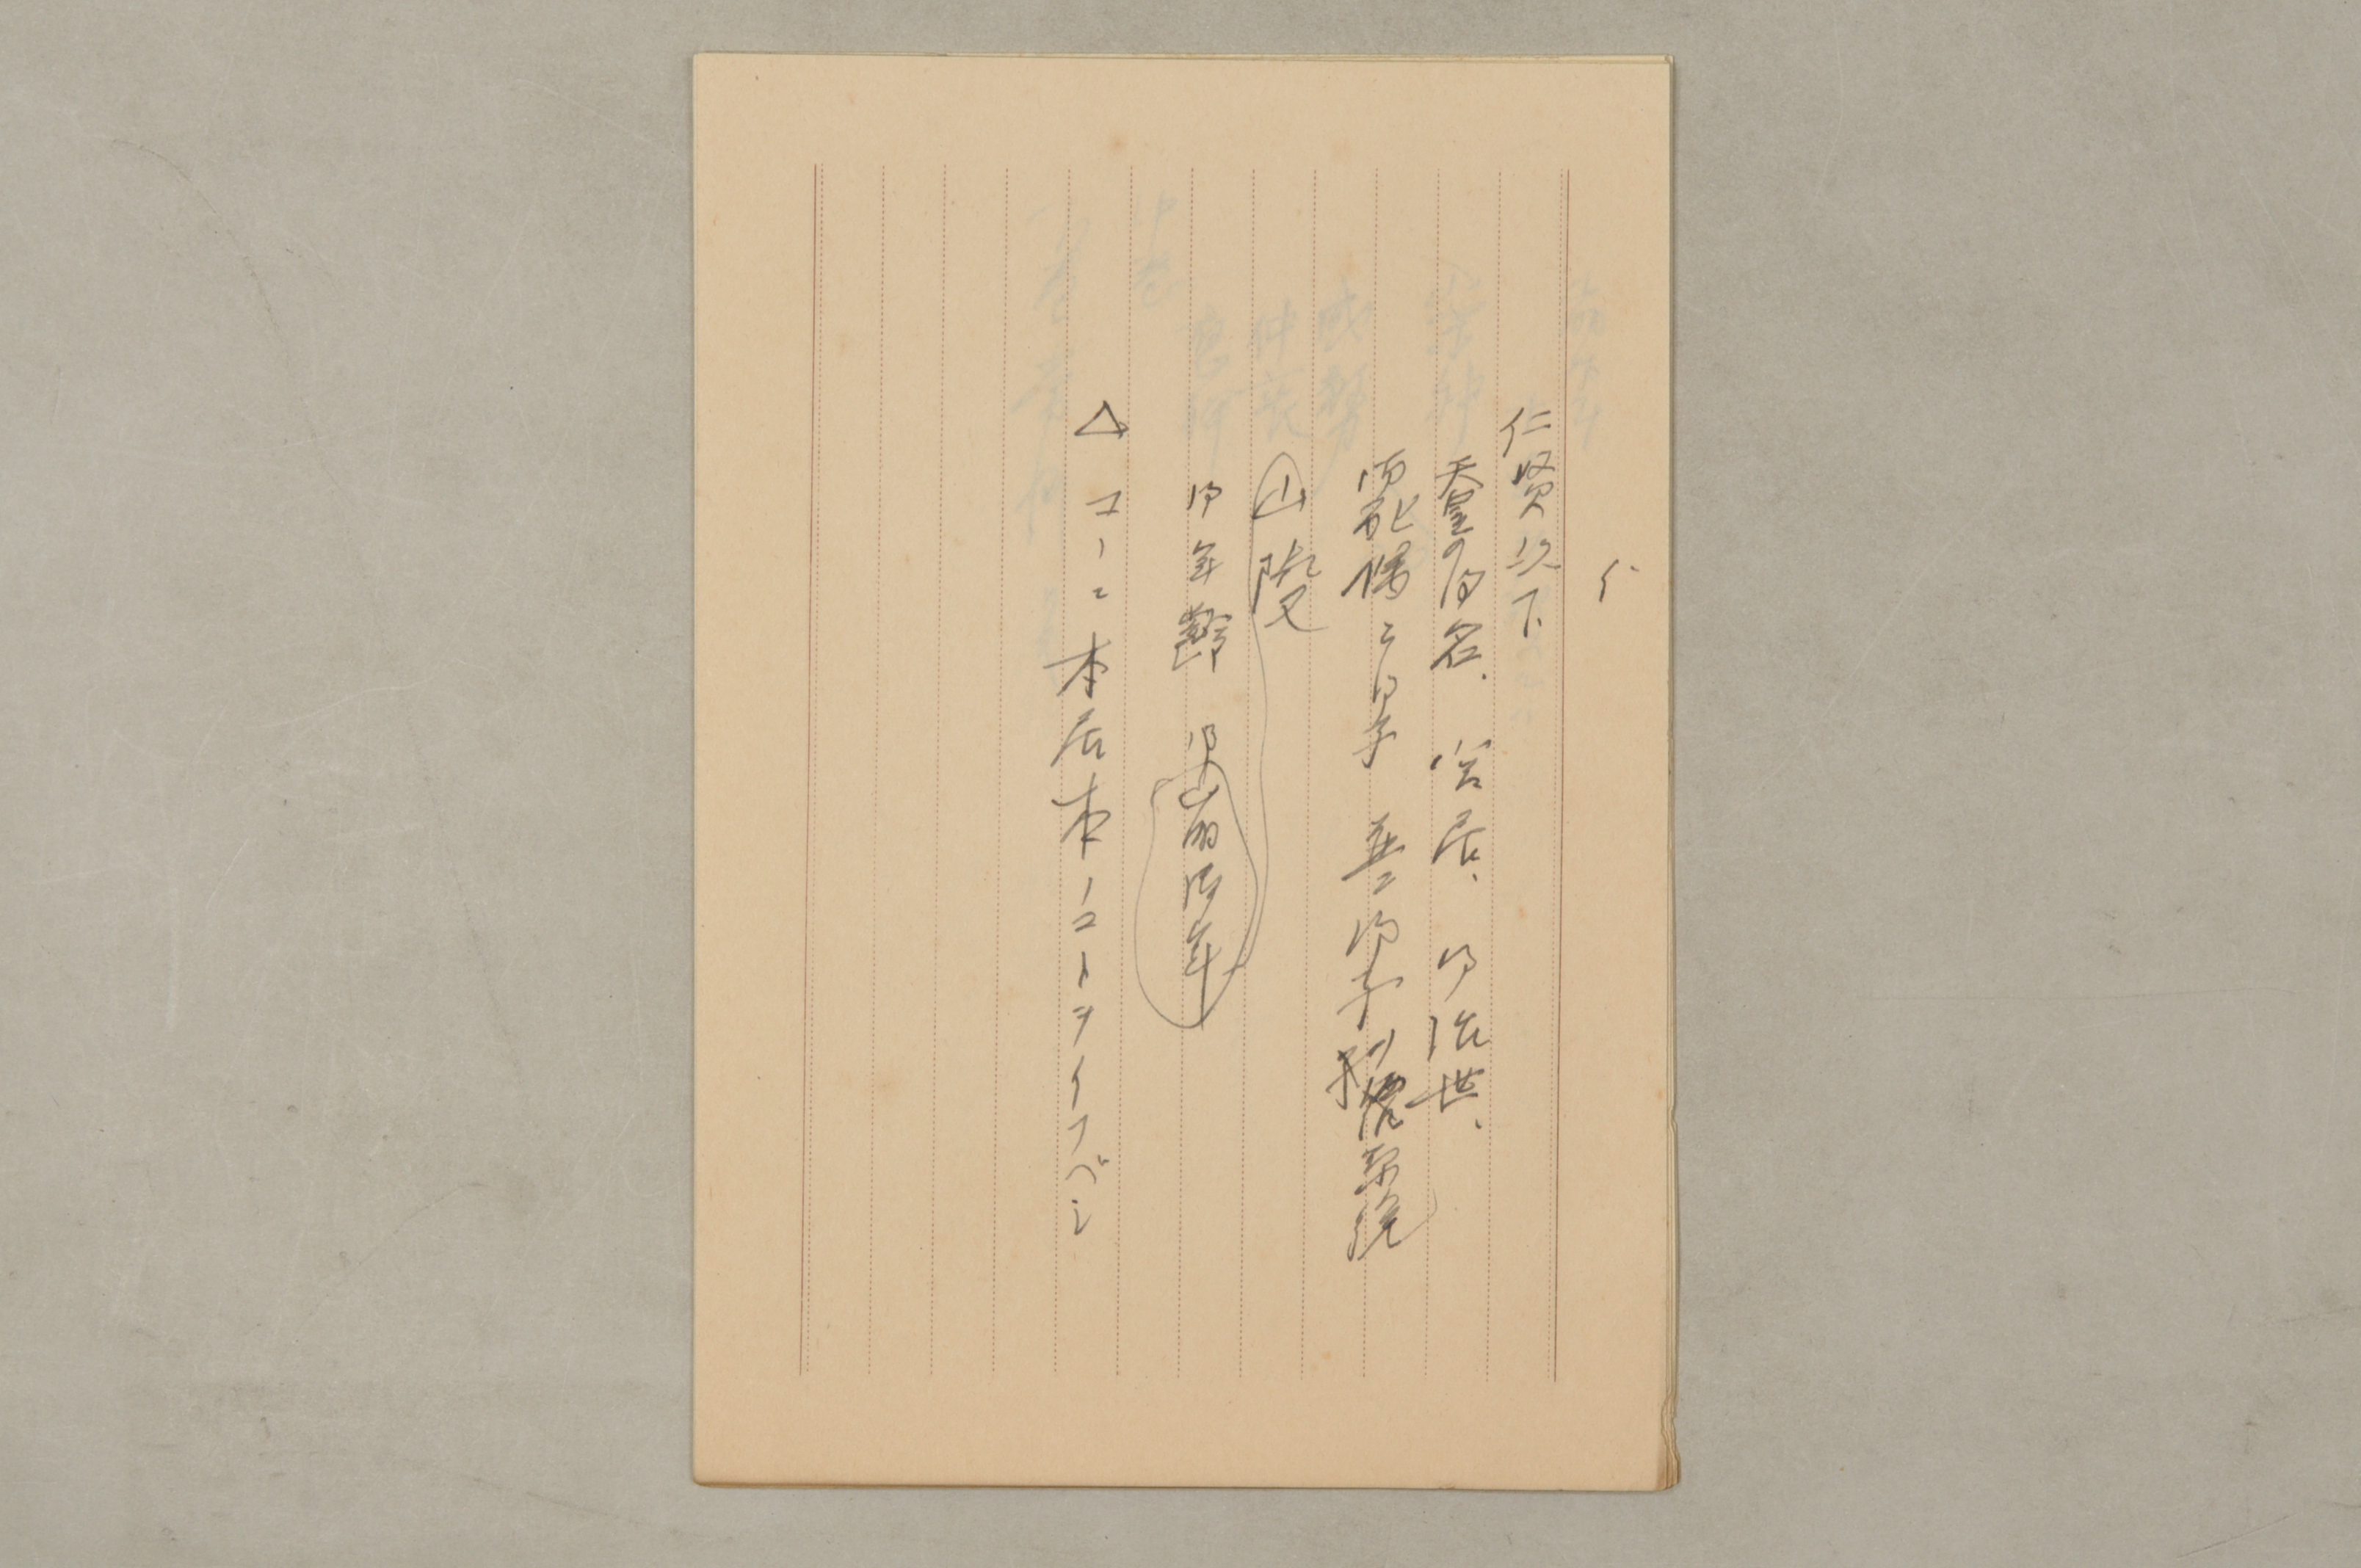 イ
仁賢以下
天皇の御名、宮居、御治世、
御配偶と御子 並ニ御子孫 系統
山陵
御年齢 崩御年
△コヽニ本居本ノコトヲイフベシ